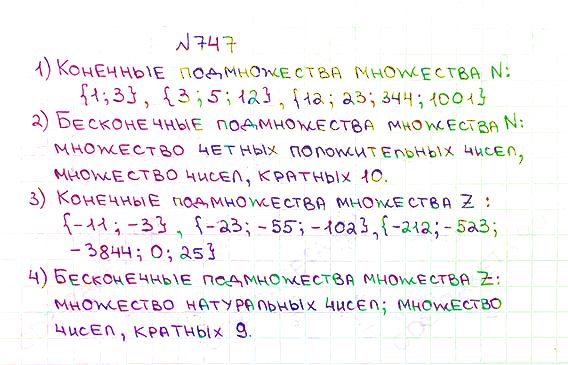 №747
1) Конечные подмножества множества N:
{1; 3}, {3; 5; 12}, {12; 23; 344; 1001}
2) Бесконечные подмножества множества N:
множество четных положительных чисел,
множество чисел, кратных 10.
3) Конечные подмножества множества Z:
{-11; -3}, {-23; -55; -102}, {-212; -523;
-3844; 0; 25}
4) Бесконечные подмножества множества Z:
множество натуральных чисел; множество
чисел, кратных 9.